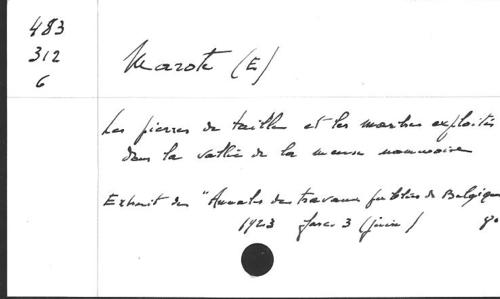 483
312
6
Marote (E)
Les pierres de taille et les marbres exploités
dans la vallée de la meuse namuroise
Extrait des "Annales des travaux publics de Belgique
1923 fasc. 3 (juin)